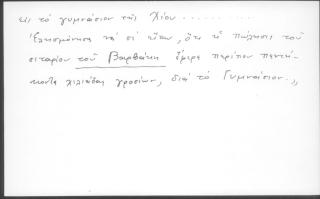 εἰς τό γυμνάσιον τῆς Χίου..........
Ἐλησμόνησα νά σέ εἴπω, ὅτι ἡ πώλησις τοῦ
σιταρίου τοῦ Βαρβάκη ἔφερε περίπου πεντή-
κοντα χιλιάδας γροσίων, διά τό Γυμνάσιον.,,